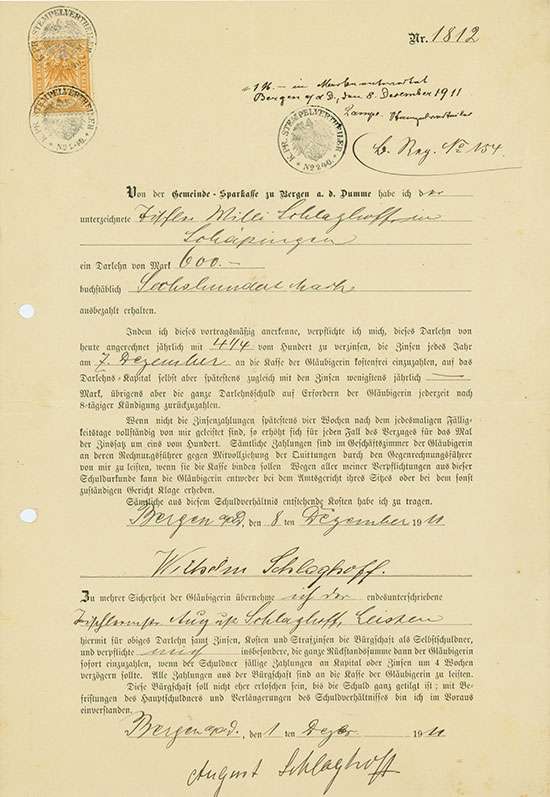 K. PR. STEMPELVERTHEILER
No 240.
Nr. 1812
1 M. – in Markenautomat
Bergen a/d D., den 8. Dezember 1911
K. PR. STEMPELVERTHEILER
No 240.
b. Reg. No 154
Von der Gemeinde-Sparkasse zu Bergen a. d. Dumme habe ich der
unterzeichnete Tischler Willi Schlaghoff in
Schäpingen
ein Darlehn von Mark 600.–
buchstäblich Sechshundert Mark
ausbezahlt erhalten.
Indem ich dieses vortragsmäßig anerkenne, verpflichte ich mich, dieses Darlehn von
heute angerechnet jährlich mit 4 1/4 vom Hundert zu verzinsen, die Zinsen jedes Jahr
am 7. Dezember an die Kasse der Gläubigerin kostenfrei einzuzahlen, auf das
Darlehns-Kapital selbst aber spätestens zugleich mit den Zinsen wenigstens jährlich —
Mark, übrigens aber die ganze Darlehnsschuld auf Erfordern der Gläubigerin jederzeit nach
8-tägiger Kündigung zurückzuzahlen.
Wenn nicht die Zinsenzahlungen spätestens vier Wochen nach dem jedesmaligen Fällig-
keitstage vollständig von mir geleistet sind, so erhöht sich für jeden Fall des Verzuges für das Mal
der Zinssatz um eins vom Hundert. Sämtliche Zahlungen sind im Geschäftszimmer der Gläubigerin
an deren Rechnungsführer gegen Mitvollziehung der Quittungen durch den Gegenrechnungsführer
von mir zu leisten, wenn sie die Kasse binden sollen Wegen aller meiner Verpflichtungen aus dieser
Schuldurkunde kann die Gläubigerin entweder bei dem Amtsgericht ihres Sitzes oder bei dem sonst
zuständigen Gericht Klage erheben.
Sämtliche aus diesem Schuldverhältnis entstehende Kosten habe ich zu tragen.
Bergen a/d D., den 8 ten Dezember 1911
Wilhelm Schlaghoff.
Zu mehrer Sicherheit der Gläubigerin übernehme ich der endesunterschriebene
Tischlermstr August Schlaghoff, Leisten
hiermit für obiges Darlehn samt Zinsen, Kosten und Strafzinsen die Bürgschaft als Selbstschuldner,
und verpflichte mich insbesondere, die ganze Rückstandsumme dann der Gläubigerin
sofort einzuzahlen, wenn der Schuldner fällige Zahlungen an Kapital oder Zinsen um 4 Wochen
verzögern sollte. Alle Zahlungen aus der Bürgschaft sind an die Kasse der Gläubigerin zu leisten.
Diese Bürgschaft soll nicht eher erloschen sein, bis die Schuld ganz getilgt ist; mit Be-
fristungen des Hauptschuldners und Verlängerungen des Schuldverhältnisses bin ich im Voraus
einverstanden.
Bergen a/d., den 1 ten Dezbr 1911
August Schlaghoff